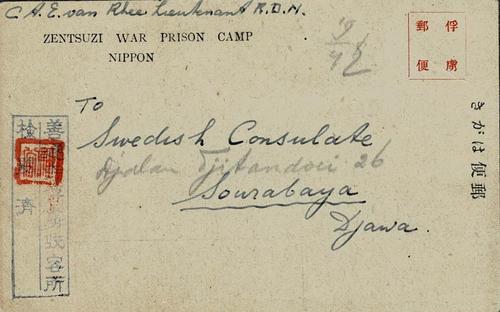 C. A. E. van Rhee Lieutenant R. D. N.
ZENTSUZI WAR PRISON CAMP
NIPPON
俘虜
郵便
To
Swedish Consulate
Djalan Tjitandoei 26
Sourabaya
Djawa.
きがは便郵
善
容所
検
済